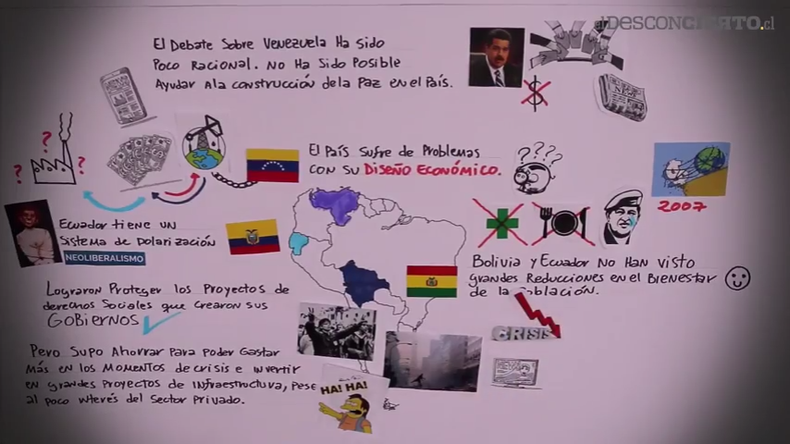 el DESCONCIERTO.cl
El Debate Sobre Venezuela Ha Sido
Poco Racional. No Ha Sido Posible
Ayudar A la construcción dela Paz en el País.
$
? ? ?
El País Sufre de Problemas
con su Diseño Económico.
? ? ? ?
2007
Ecuador tiene un
Sistema de Dolarización
NEOLIBERALISMO
Bolivia y Ecuador no Han visto
grandes Reducciones en el Bienestar
de la Población.
Lograron Proteger los Proyectos de
derechos Sociales que crearon sus
Gobiernos
CRISIS
Pero Supo Ahorrar para Poder Gastar
Más en los Momentos de crisis e invertir
en grandes Proyectos de Infraestructura, Pese
al poco interés del Sector Privado.
HA! HA!